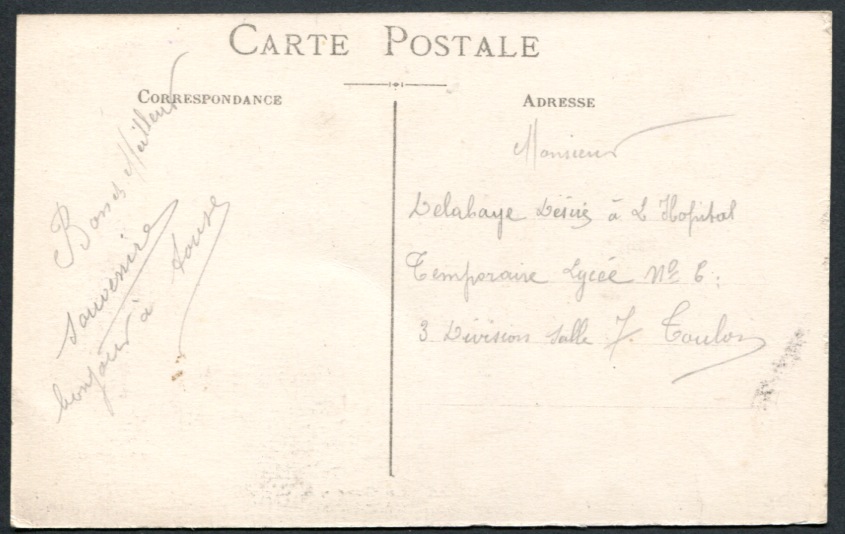 CARTE POSTALE
CORRESPONDANCE
Bons Meilleur
souvenire
bonjour à touse
ADRESSE
Monsieur
Delahaye Désiré à L Hopital
Temporaire Lycée Nº 6:
3 Division Salle 7. Toulon